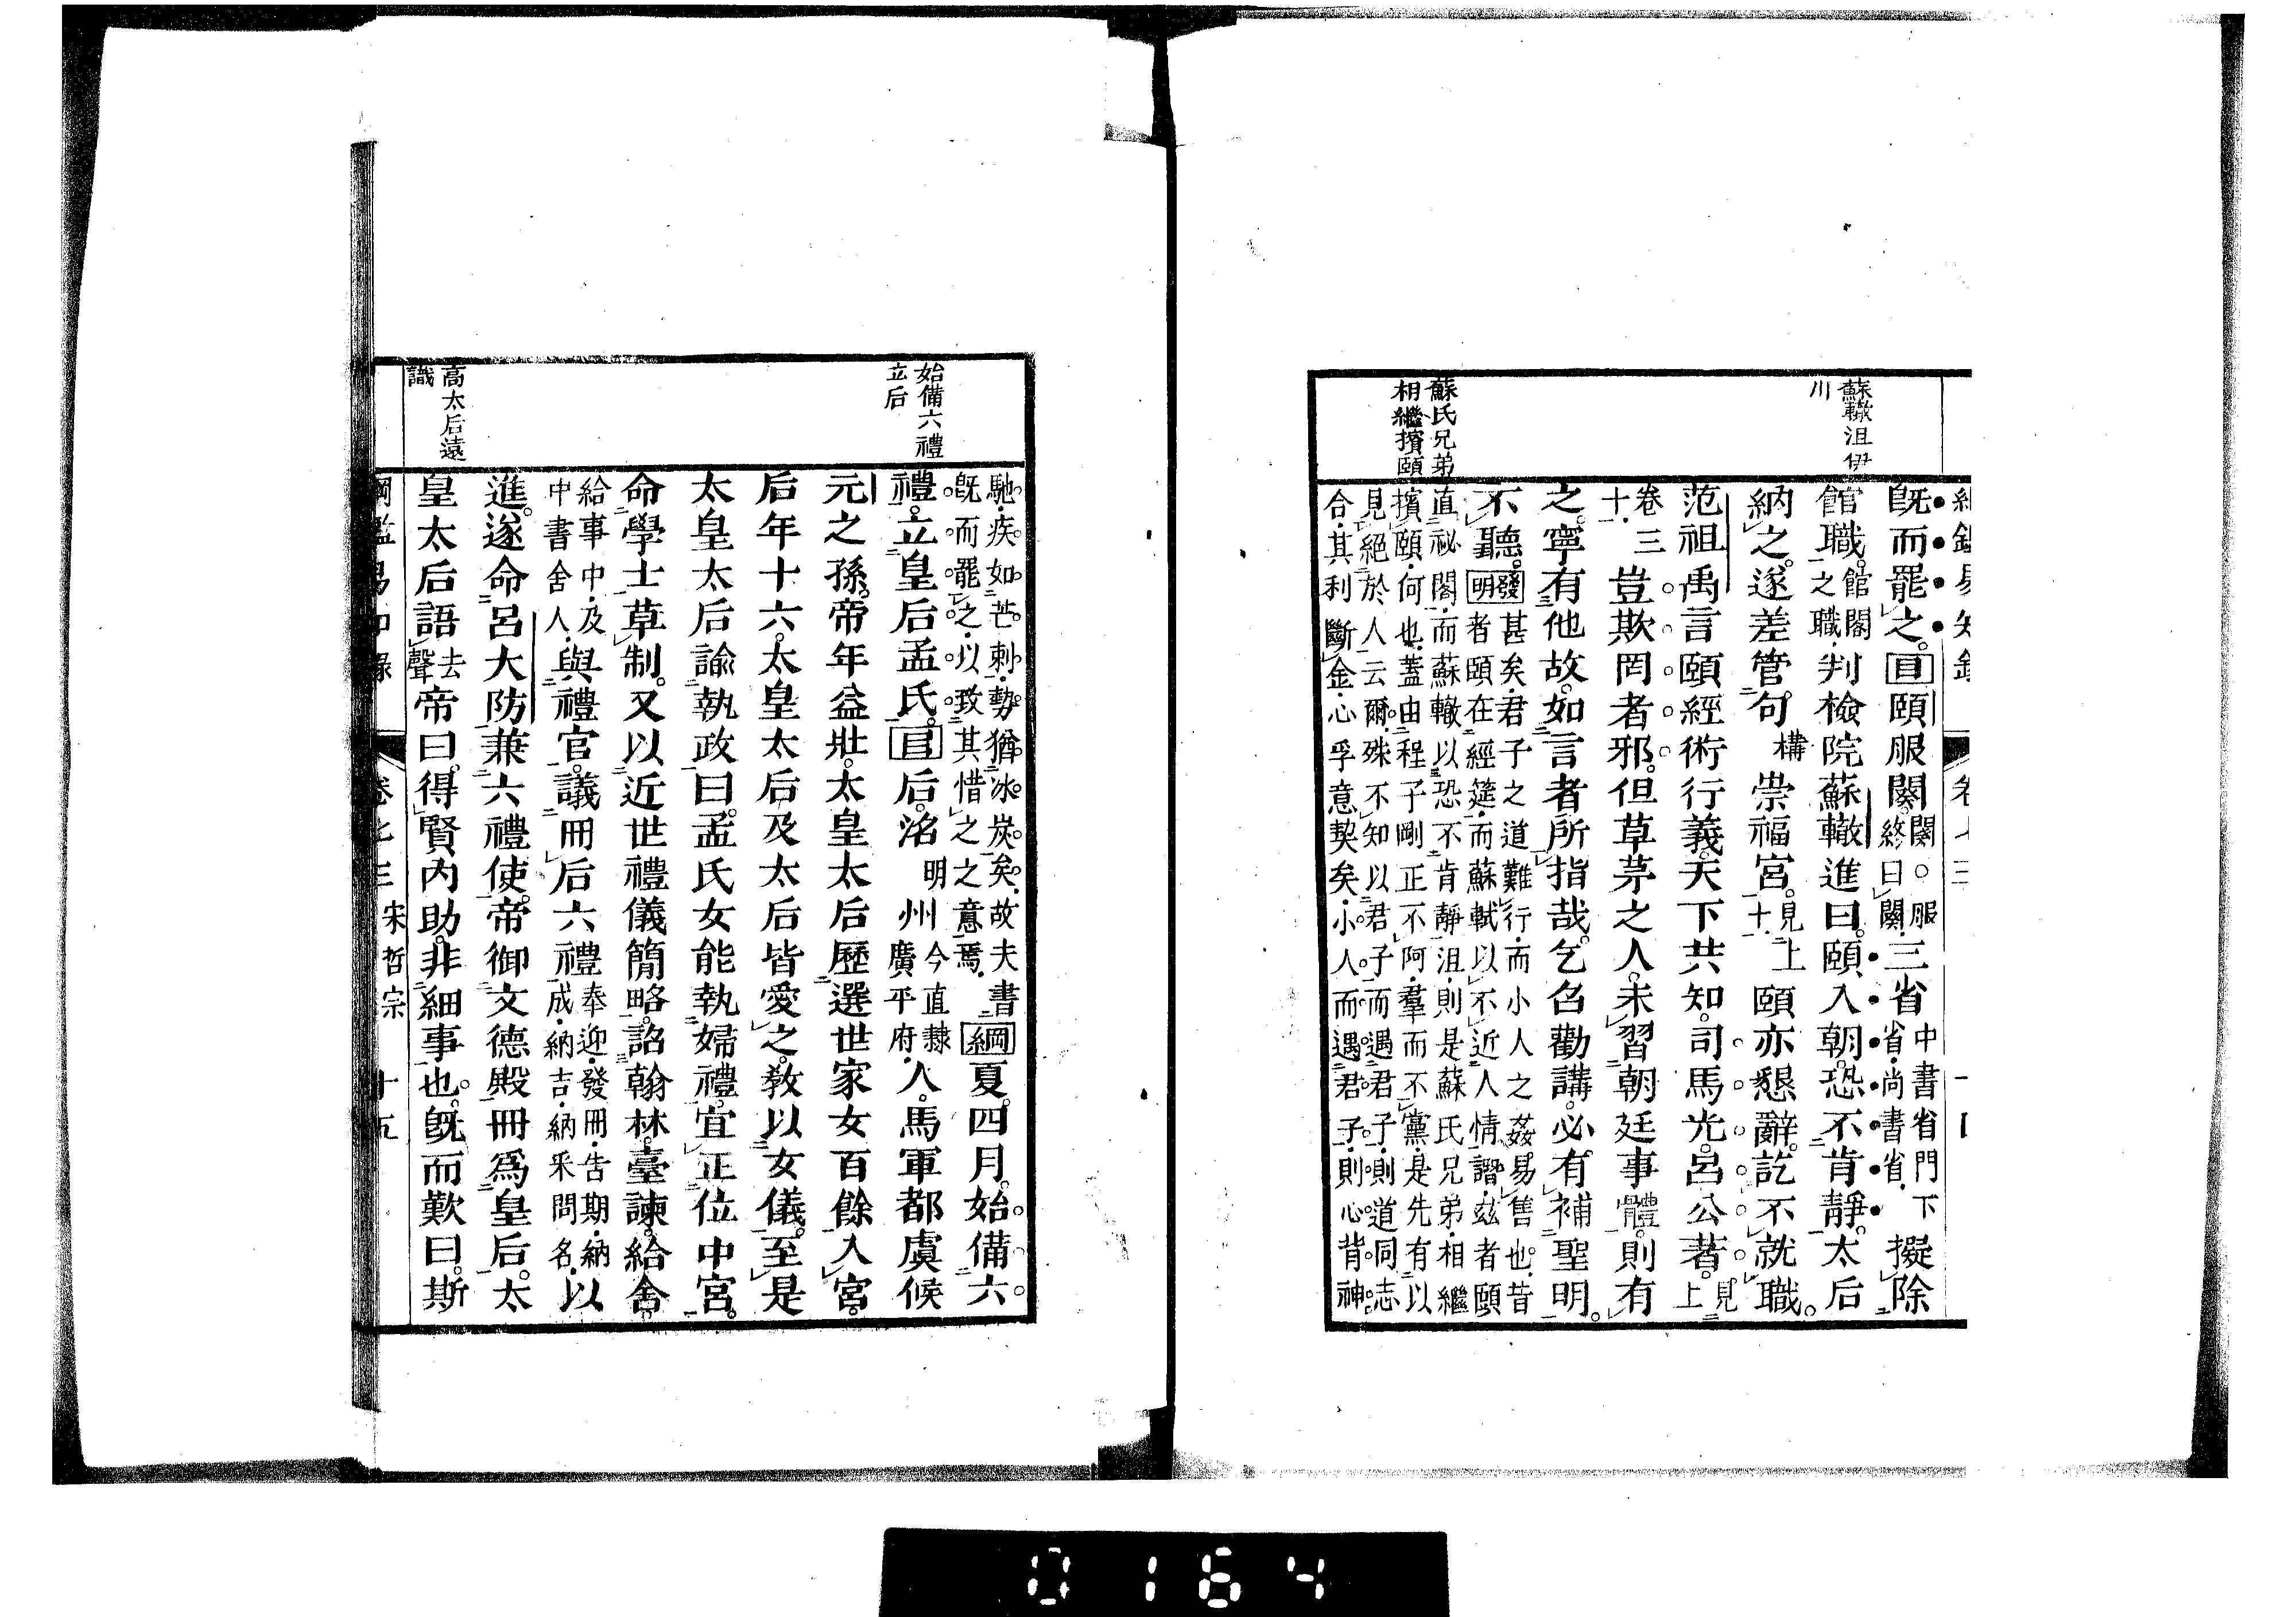 綱鑑易知錄 卷七三
蘇轍沮伊
川
既而罷之。目頤服闋。闋○服終曰闋。三省中書省門下省尚書省擬除
館職。館閣之職判檢院蘇轍進曰。頤入朝。恐不肯靜。太后
納之。遂差管句構崇福宮。見上十頤亦懇辭。訖不就職。
范祖禹言頤經術行義。天下共知。司馬光。呂公著。見上
卷三十豈欺罔者邪。但草茅之人。未習朝廷事體。則有
之。寧有他故。如言者所指哉。乞召勸講。必有補聖明。
蘇氏兄弟
相繼擯頤
不聽。發明甚矣。君子之道難行。而小人之姦易售也。昔
者頤在經筵。而蘇軾以不近人情譖。茲者頤
直祕閣。而蘇轍以恐不肯靜沮。則是蘇氏兄弟。相繼
擯頤。何也。蓋由程子剛正不阿。羣而不黨。是先有以
見絕於人云爾。殊不知以君子而遇君子。則道同志
合。其利斷金。心孚意契矣。小人而遇君子。則心背神
馳。疾如芒刺。勢猶冰炭矣。故夫書
既而罷之。以致其惜之之意焉。綱夏。四月。始備六
始備六禮
立后
禮。立皇后孟氏。目后。洺明州今直隸廣平府人。馬軍都虞候
元之孫。帝年益壯。太皇太后歷選世家女百餘入宮。
后年十六。太皇太后及太后皆愛之。教以女儀。至是
太皇太后諭執政曰。孟氏女能執婦禮。宜正位中宮。
命學士草制。又以近世禮儀簡略。詔翰林。臺諫。給舍
給事中。及中書舍人。與禮官。議冊后六禮奉迎。發冊。告期。納成。納吉。納采問名。以
進。遂命呂大防兼六禮使。帝御文德殿冊為皇后。太
高太后遠
識
皇太后語去聲帝曰。得賢內助。非細事也。既而歎曰。斯
綱鑑易知錄 卷七三 宋哲宗 十五
0164